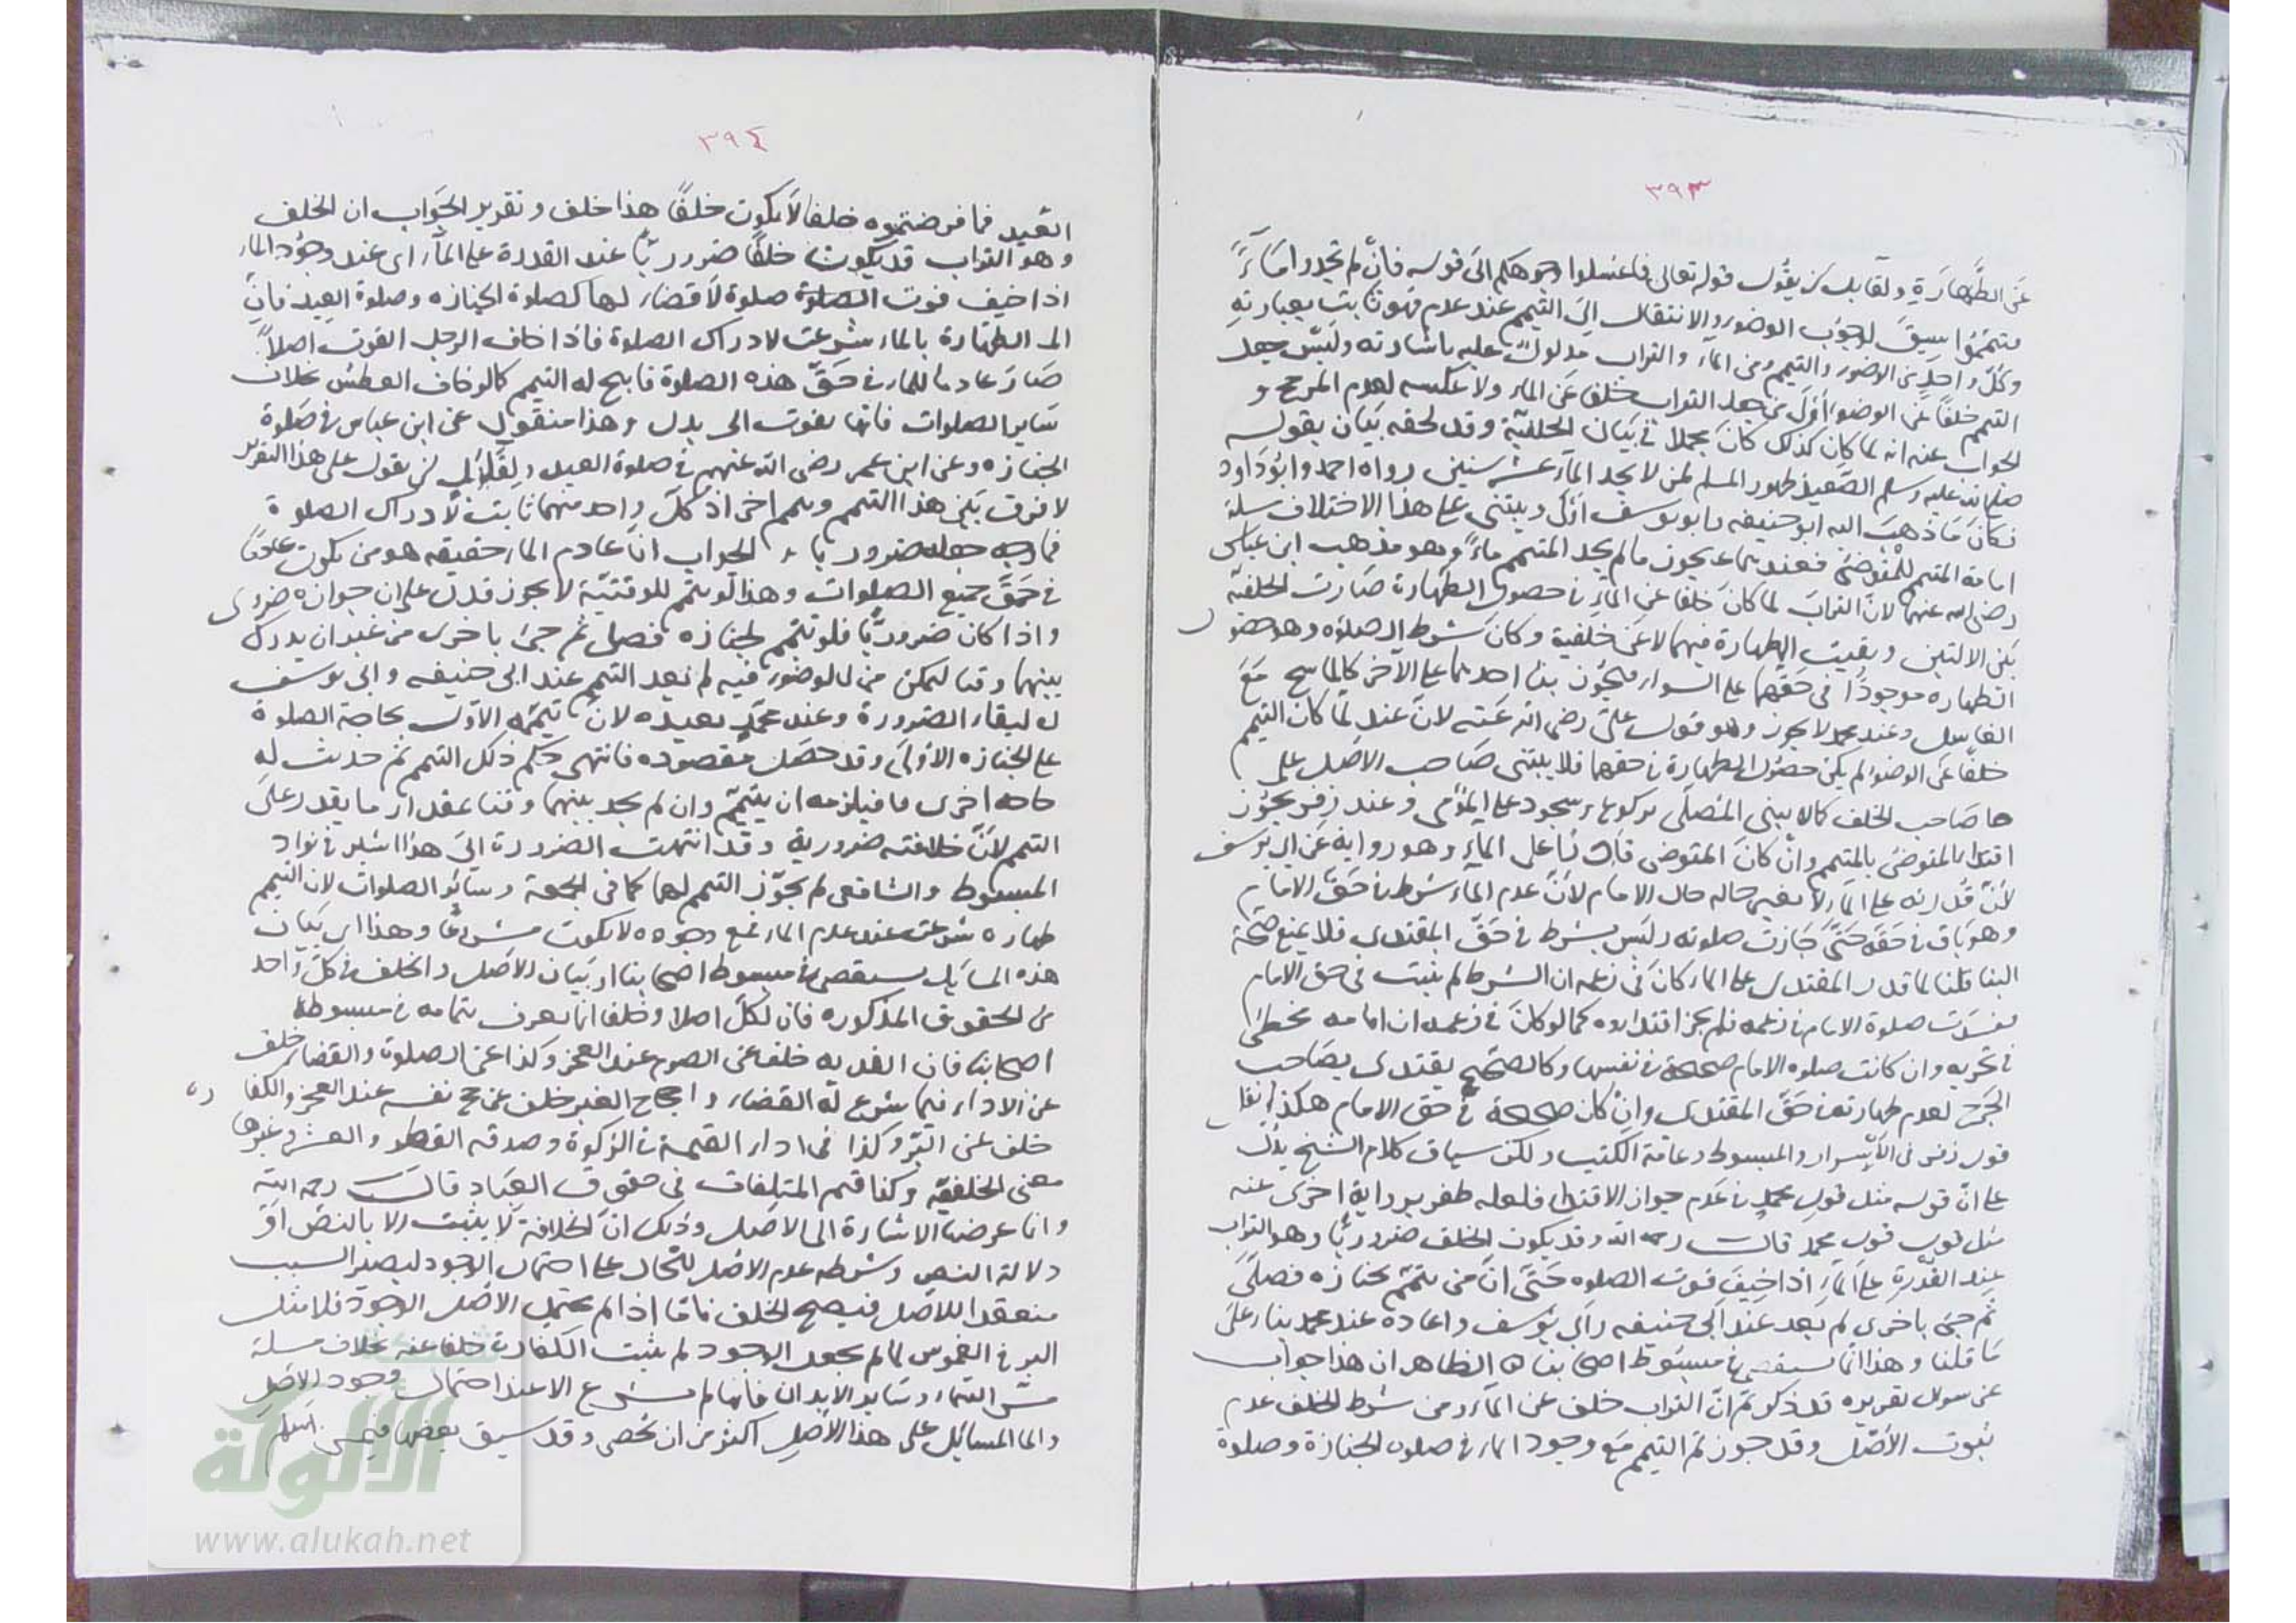 ٣٩٣
عن الطهارة ولقايل ان يقول قوله تعالى فاغسلوا وجوهكم الى قوله فان لم تجدوا ماءً
فتيمموا سيق لوجوب الوضوء والانتقال الى التيمم عند عدم فهو ثابت بعبارته
وكل واحد من الوضوء والتيمم ومن الماء والتراب مدلول عليه باشارته وليس جعل
التيمم خلفا عن الوضوء اولى من جعل التراب خلفا عن الماء ولا عكسه لعدم المرجح و
الجواب عنه انه لما كان كذلك كان مجملا في بيان الخلفية وقد لحقه بيان بقوله
صلى الله عليه وسلم الصعيد طهور المسلم لمن لا يجد الماء عشر سنين رواه احمد وابو داود
فكان ما ذهب اليه ابو حنيفه وابو يوسف اولى ويبتنى على هذا الاختلاف مسلة
امامة المتيمم للمتوضئ فعندهما يجوز ما لم يجد المتيمم ماءً وهو مذهب ابن عباس
رضى الله عنهما لان التراب لما كان خلفا عن الماء في حصول الطهارة صارت الخلفية
بين الالتين وبقيت الطهارة فيهما لا عن خلفية وكان شرط الصلوه وهو حصو
الطهاره موجودًا في حقهما على السواء فيجوز بنا احدهما على الاخر كالماسح مع
الغاسل وعند محمد لا يجوز وهو قول على رضى الله عنه لان عنده لما كان التيمم
خلفا عن الوضوء لم يكن حصول الطهارة في حقهما فلا يبتنى صاحب الاصل على
ها صاحب الخلف كما لا يبنى المصلى بركوع وسجود على المؤمى وعند زفر يجوز
اقتدا المتوضئ بالمتيمم وان كان المتوضى قادرًا على الماء وهو رواية عن ابى يوسف
لان قدرته على الماء لا تغير حاله حال الامام لان عدم الماء شرط في حق الامام
وهو باق في حقه حتى جازت صلوته وليس بشرط في حق المقتدى فلا يمنع صحة
البنا قلنا لما قدر المقتدى على الماء كان في زعمه ان الشرط لم يثبت في حق الامام
ففسدت صلوة الامام في زعمه فلم يجز اقتداوه كما لو كان في زعمه ان امامه مخطئ
في تحريه وان كانت صلوه الامام صحيحة في نفسها وكالصحيح يقتدى بصاحب
الجرح لعدم طهارته في حق المقتدى وان كان صحيحة في حق الامام هكذا نقل
قول زفر في الاسرار والمبسوط وعامة الكتب ولكن سياق كلام الشيخ يدل
على ان قوله مثل قول محمد في عدم جواز الاقتدا فلعله ظفر برواية اخرى عنه
مثل قول قول محمد قال رحمه الله وقد يكون الخلف ضروريًا وهو التراب
عند القدرة على الماء اذا خيف فوت الصلوه حتى ان من تيمم لجنازه فصلى
ثم جئ باخرى لم يعد عند ابى حنيفه وابى يوسف واعاده عند محمد بناء على
ما قلنا وهذا انما يستقصى في مبسوط اصحابنا ه الظاهر ان هذا جواب
عن سوال تقريره قد ذكرتم ان التراب خلف عن الماء ومن شرط الخلف عدم
ثبوت الاصل وقد جوزتم التيمم مع وجود الماء في صلوه الجنازة وصلوة
٣٩٤
العيد فما فرضتموه خلفا لا يكون خلفًا هذا خلف وتقرير الجواب ان الخلف
وهو التراب قد يكون خلفًا ضروريًا عند القدرة على الماء اى عند وجود الماء
اذا خيف فوت الصلوة صلوة لا قضاء لها كصلوة الجنازه وصلوة العيد فان
الـ الطهارة بالماء شرعت لادراك الصلوة فاذا خاف الرجل الفوت اصلاً
صار عادما للماء في حق هذه الصلوة فابيح له التيمم كما لو خاف العطش بخلاف
ساير الصلوات فانها تفوت الى بدل وهذا منقول عن ابن عباس في صلوة
الجنازه وعن ابن عمر رضى الله عنهم في صلوة العيد ولقائل ان يقول على هذا التقرير
لا فرق بين هذا التيمم وتيمم اخر اذ كل واحد منهما ثابت لادراك الصلوة
فما وجه جعله ضروريا والجواب ان عادم الماء حقيقه هو من يكون عادمًا
في حق جميع الصلوات وهذا لو تيمم للوقتية لا يجوز فدل على ان جوازه ضرورى
واذا كان ضروريًا فلو تيمم لجنازه فصلى ثم جئ باخرى من غير ان يدرك
بينهما وقتا يتمكن من الوضوء فيه لم يعد التيمم عند ابى حنيفه وابى يوسف
له لبقاء الضرورة وعند محمد يعيده لان تيممه الاول لحاجة الصلوة
على الجنازه الاولى وقد حصل مقصوده فانتهى حكم ذلك التيمم ثم حدثت له
حاجه اخرى فيلزمه ان يتيمم وان لم يجد بينهما وقتا بمقدار ما يقدر على
التيمم لان خلافته ضرورية وقد انتهت الضرورة الى هذا اشير في نوادر
المبسوط والشافعى لم يجوز التيمم لهما كما في الجمعة وسائر الصلوات لان التيمم
طهاره شرعت عند عدم الماء فمع وجوده لا يكون مشروعًا وهذا اى بيان
هذه المسائل يستقصى في مبسوط اصحابنا او بيان الاصل والخلف في كل واحد
من الحقوق المذكوره فان لكل اصلا وخلفا انما يعرف بتمامه في مبسوط
اصحابنا فان الفديه خلف عن الصوم عند العجز وكذا عن الصلوة والقضاء خلف
عن الاداء فيما شرع له القضاء واحجاج الغير خلف عن حج نفسه عند العجز والكفا
خلف عن البر وكذا في اداء القيمة في الزكوة وصدقه الفطر والعشر وغيرها
معنى الخلفية وكذا قيم المتلفات في حقوق العباد قال رحمه الله
وانما غرضنا الاشارة الى الاصل وذلك ان الخلافة لا يثبت الا بالنص او
دلالة النص وشرطه عدم الاصل للحال على احتمال الوجود ليصير السبب
منعقدا للاصل فيصح الخلف فاما اذا لم يحتمل الاصل الوجود فلا مثل
البر في الغموس لما لم يحتمل الوجود لم يثبت الكفارة خلفا عنه بخلاف مسلة
مس السماء وساير الابدال فانها لم تشرع الا عند احتمال وجود الاصل
واما المسائل على هذا الاصل اكثر من ان تحصى وقد سبق بعضها فيما
الألوكة
www.alukah.net